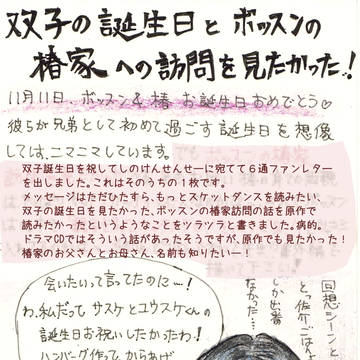 双子の誕生日とボッスンの
椿家への訪問を見たかった!
11月11日 ボッスン&椿 お誕生日おめでとう♡
彼らが兄弟として初めて過ごす誕生日を想像
しては、ニマニマしています。
双子誕生日を祝してしのけんせんせーに宛てて6通ファンレター
を出しました。これはそのうちの1枚です。
メッセージはただひたすら、もっとスケットダンスを読みたい、
双子の誕生日を見たかった、ボッスンの椿家訪問の話を原作で
読みたかったというようなことをツラツラと書きました。病的。
ドラマCDではそういう話があったそうですが、原作でも見たかった!
椿家のお父さんとお母さん、名前も知りたいー!
会いたいって言ってたのに…!
わ、私だって サスケとユウスケくんの
誕生日お祝いしたかったわ!
ハンバーグ作って、からあげ
回想シーンと
しか出番
なかった…